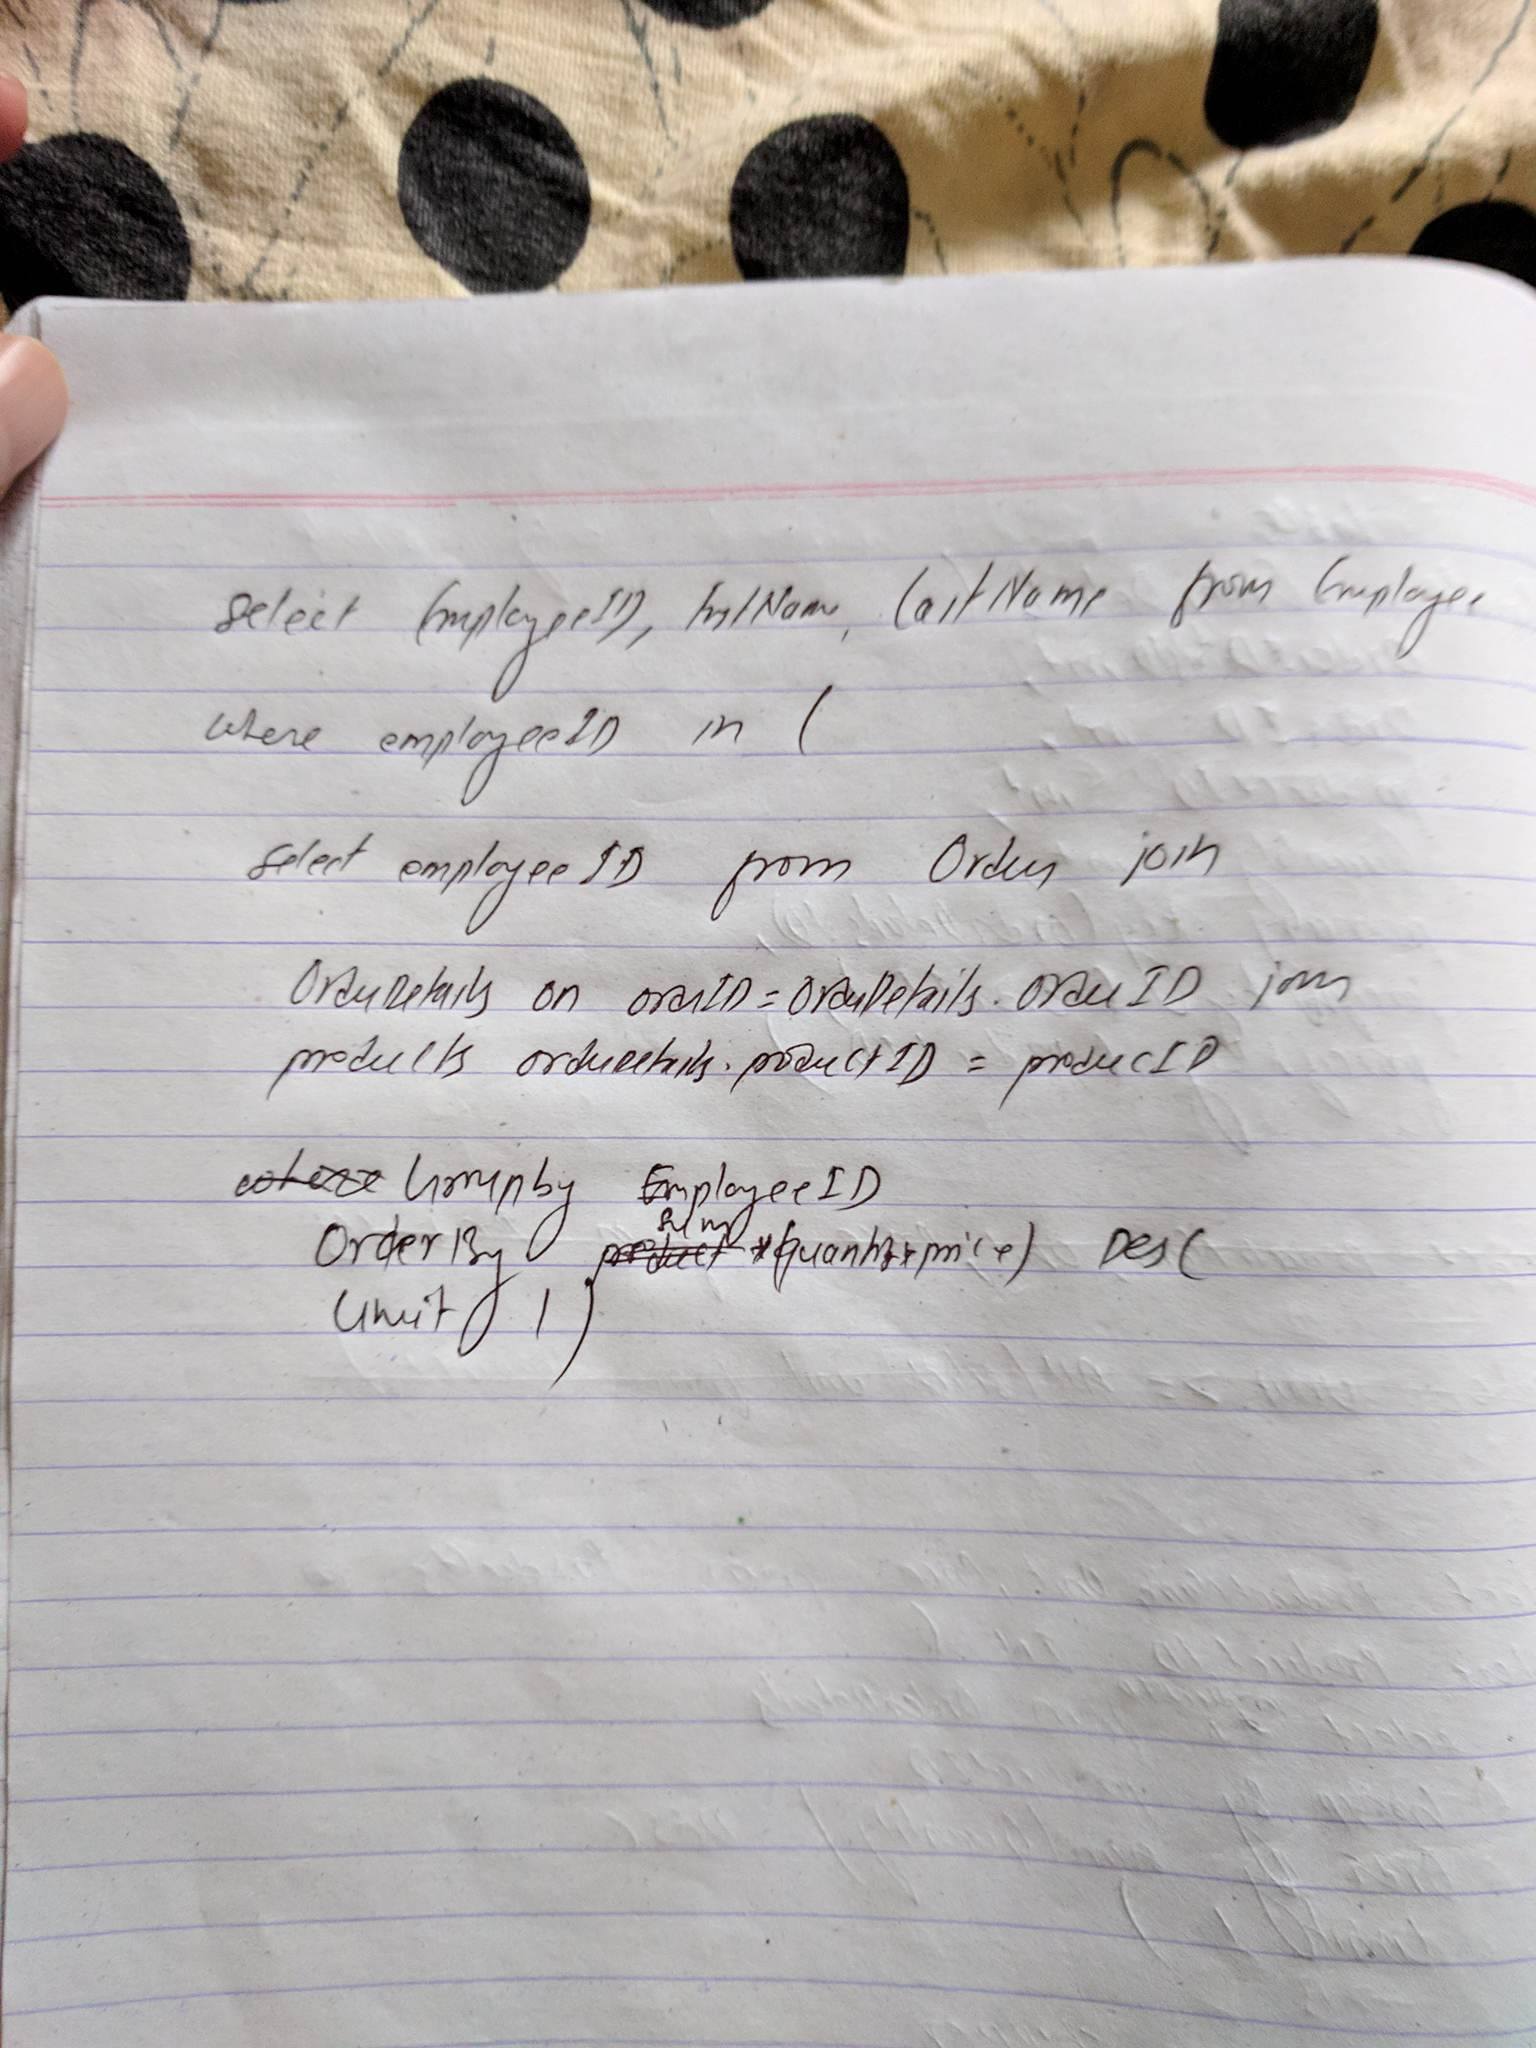 Select EmployeeID, firstName, LastName from Employee
where employeeID in (
select employeeID from Orders join
OrderDetails on orderID = OrderDetails.OrderID join
products orderdetails.productID = producID
Groupby EmployeeID
sum
OrderBy (quantity*price) Desc
Limit 1)